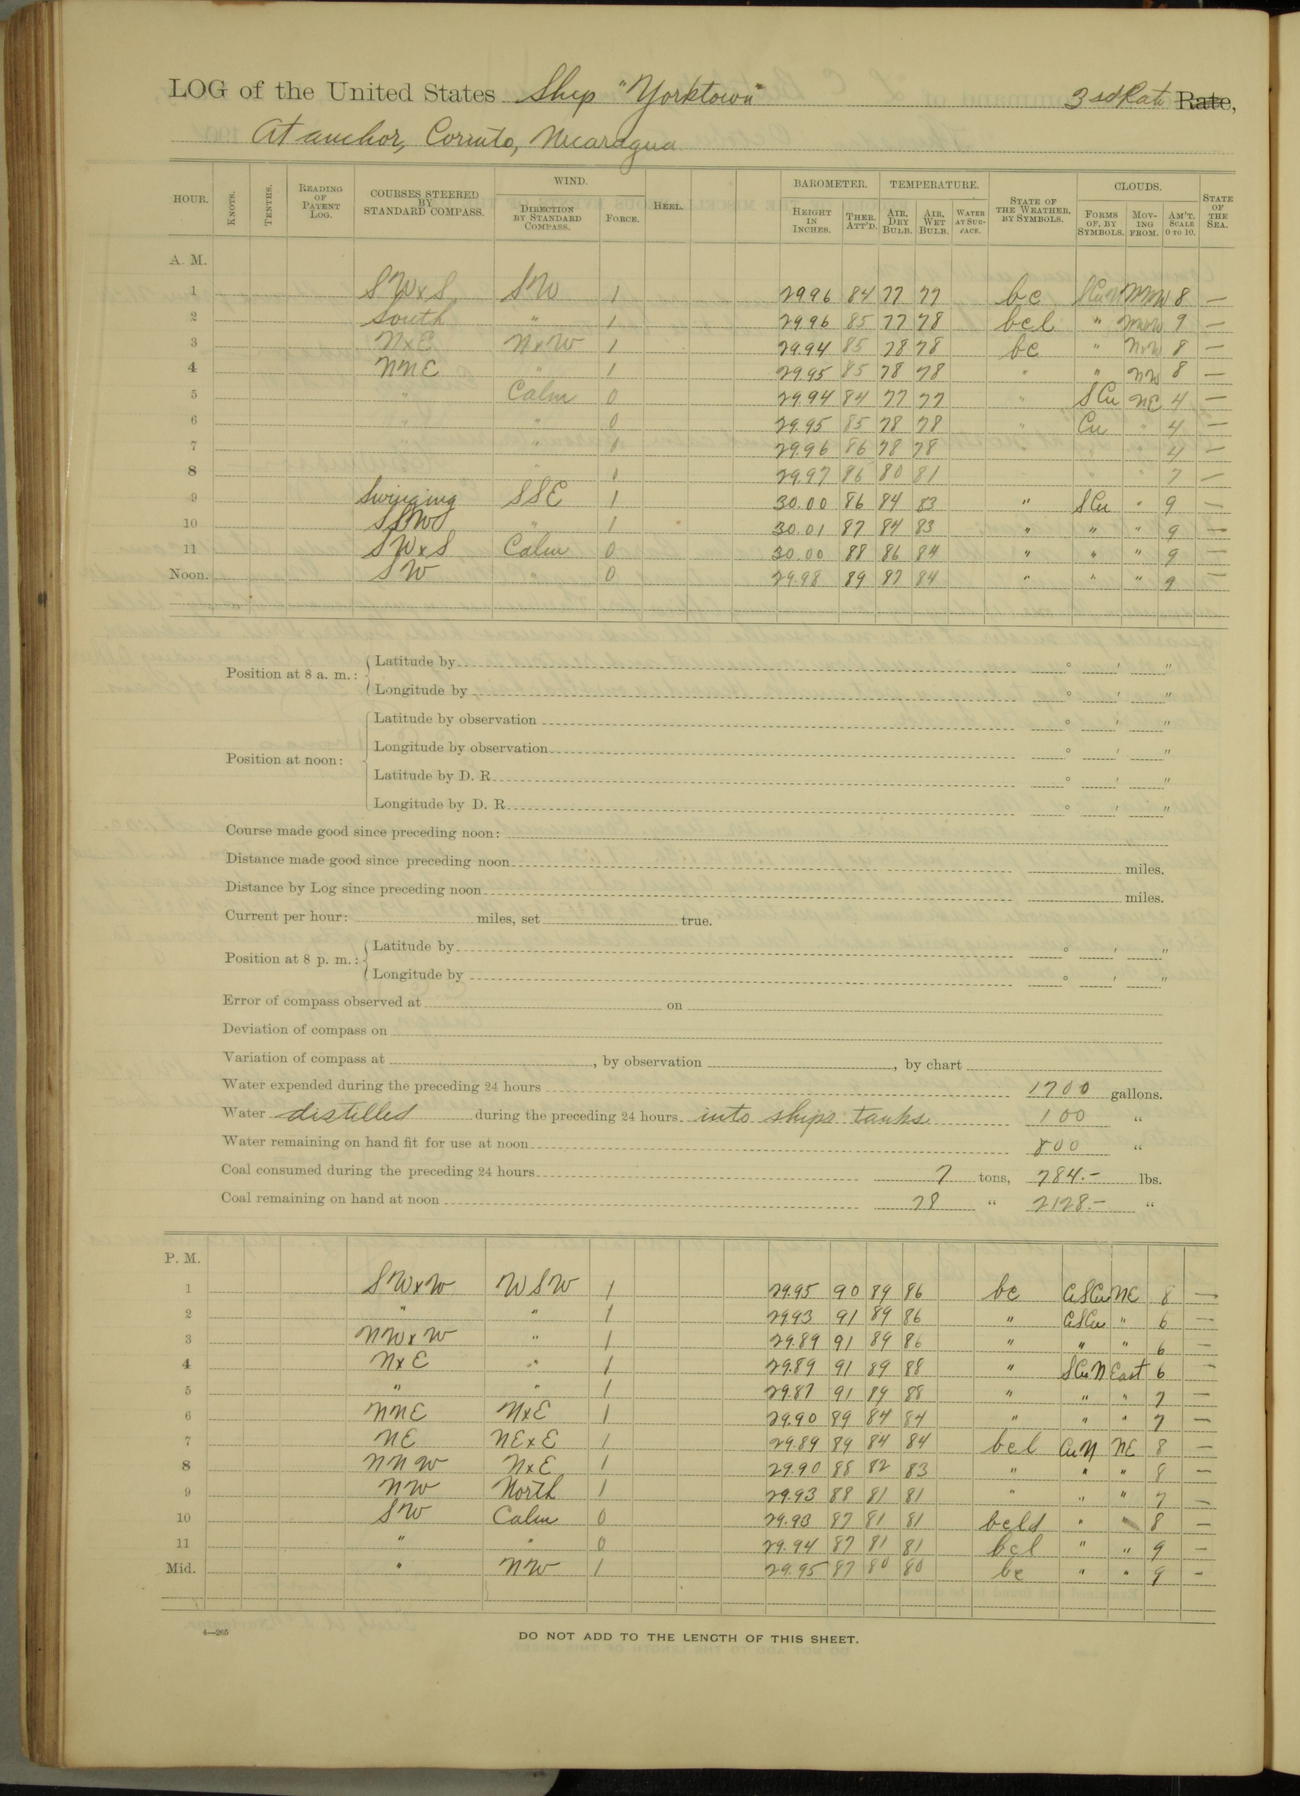 LOG of the United States Ship "Yorktown" 3rd Rate Rate,
At anchor, Corinto, Nicaragua
HOUR. KNOTS. TENTHS. READING OF PATENT LOG. COURSES STEERED BY STANDARD COMPASS. WIND. DIRECTION BY STANDARD COMPASS. FORCE. HEEL. BAROMETER. HEIGHT IN INCHES. THER. ATT'D. TEMPERATURE. AIR, DRY BULB. AIR, WET BULB. WATER AT SURFACE. STATE OF THE WEATHER, BY SYMBOLS. CLOUDS. FORMS OF, BY SYMBOLS. MOVING FROM. AM'T. SCALE 0 TO 10. STATE OF THE SEA.
A. M.
1 SWxS SW 1 29.96 84 77 77 bc 8 —
2 South " 1 29.96 85 77 78 bcl " 9 —
3 NxE NxW 1 29.94 85 78 78 bc " NxW 8 —
4 NNE " 1 29.95 85 78 78 " " NW 8 —
5 " Calm 0 29.94 84 77 77 " SCu NE 4 —
6 " " 0 29.95 85 78 78 " Cu " 4 —
7 " " 1 29.96 86 78 78 " " " 4 —
8 " " 1 29.97 86 80 81 " " " 7 —
9 Swinging SSE 1 30.00 86 84 83 " SCu " 9 —
10 SSW " 1 30.01 87 84 83 " " " 9 —
11 SWxS Calm 0 30.00 88 86 84 " " " 9 —
Noon. SW " 0 29.98 89 87 84 " " " 9 —
Position at 8 a. m.: Latitude by ° ' "
Longitude by ° ' "
Position at noon: Latitude by observation ° ' "
Longitude by observation ° ' "
Latitude by D. R. ° ' "
Longitude by D. R. ° ' "
Course made good since preceding noon:
Distance made good since preceding noon miles.
Distance by Log since preceding noon miles.
Current per hour: miles, set true.
Position at 8 p. m.: Latitude by ° ' "
Longitude by ° ' "
Error of compass observed at on
Deviation of compass on
Variation of compass at , by observation , by chart
Water expended during the preceding 24 hours 1700 gallons.
Water distilled during the preceding 24 hours into ships tanks 100 "
Water remaining on hand fit for use at noon 800 "
Coal consumed during the preceding 24 hours 7 tons, 784.- lbs.
Coal remaining on hand at noon 78 " 2128.- "
P. M.
1 SWxW WSW 1 29.95 90 89 86 bc CiSCu NE 8 —
2 " " 1 29.93 91 89 86 " CiSCu " 6 —
3 NWxW " 1 29.89 91 89 86 " " " 6 —
4 NxE " 1 29.89 91 89 88 " SCuN East 6 —
5 " " 1 29.87 91 89 88 " " " 7 —
6 NNE NxE 1 29.90 89 84 84 " " " 7 —
7 NE NExE 1 29.89 89 84 84 bcl CuN NE 8 —
8 NNW NxE 1 29.90 88 82 83 " " " 8 —
9 NW North 1 29.93 88 81 81 " " " 7 —
10 SW Calm 0 29.93 87 81 81 bcld " " 8 —
11 " " 0 29.94 87 81 81 bcl " " 9 —
Mid. " NW 1 29.95 87 80 80 bc " " 9 —
4—265
DO NOT ADD TO THE LENGTH OF THIS SHEET.